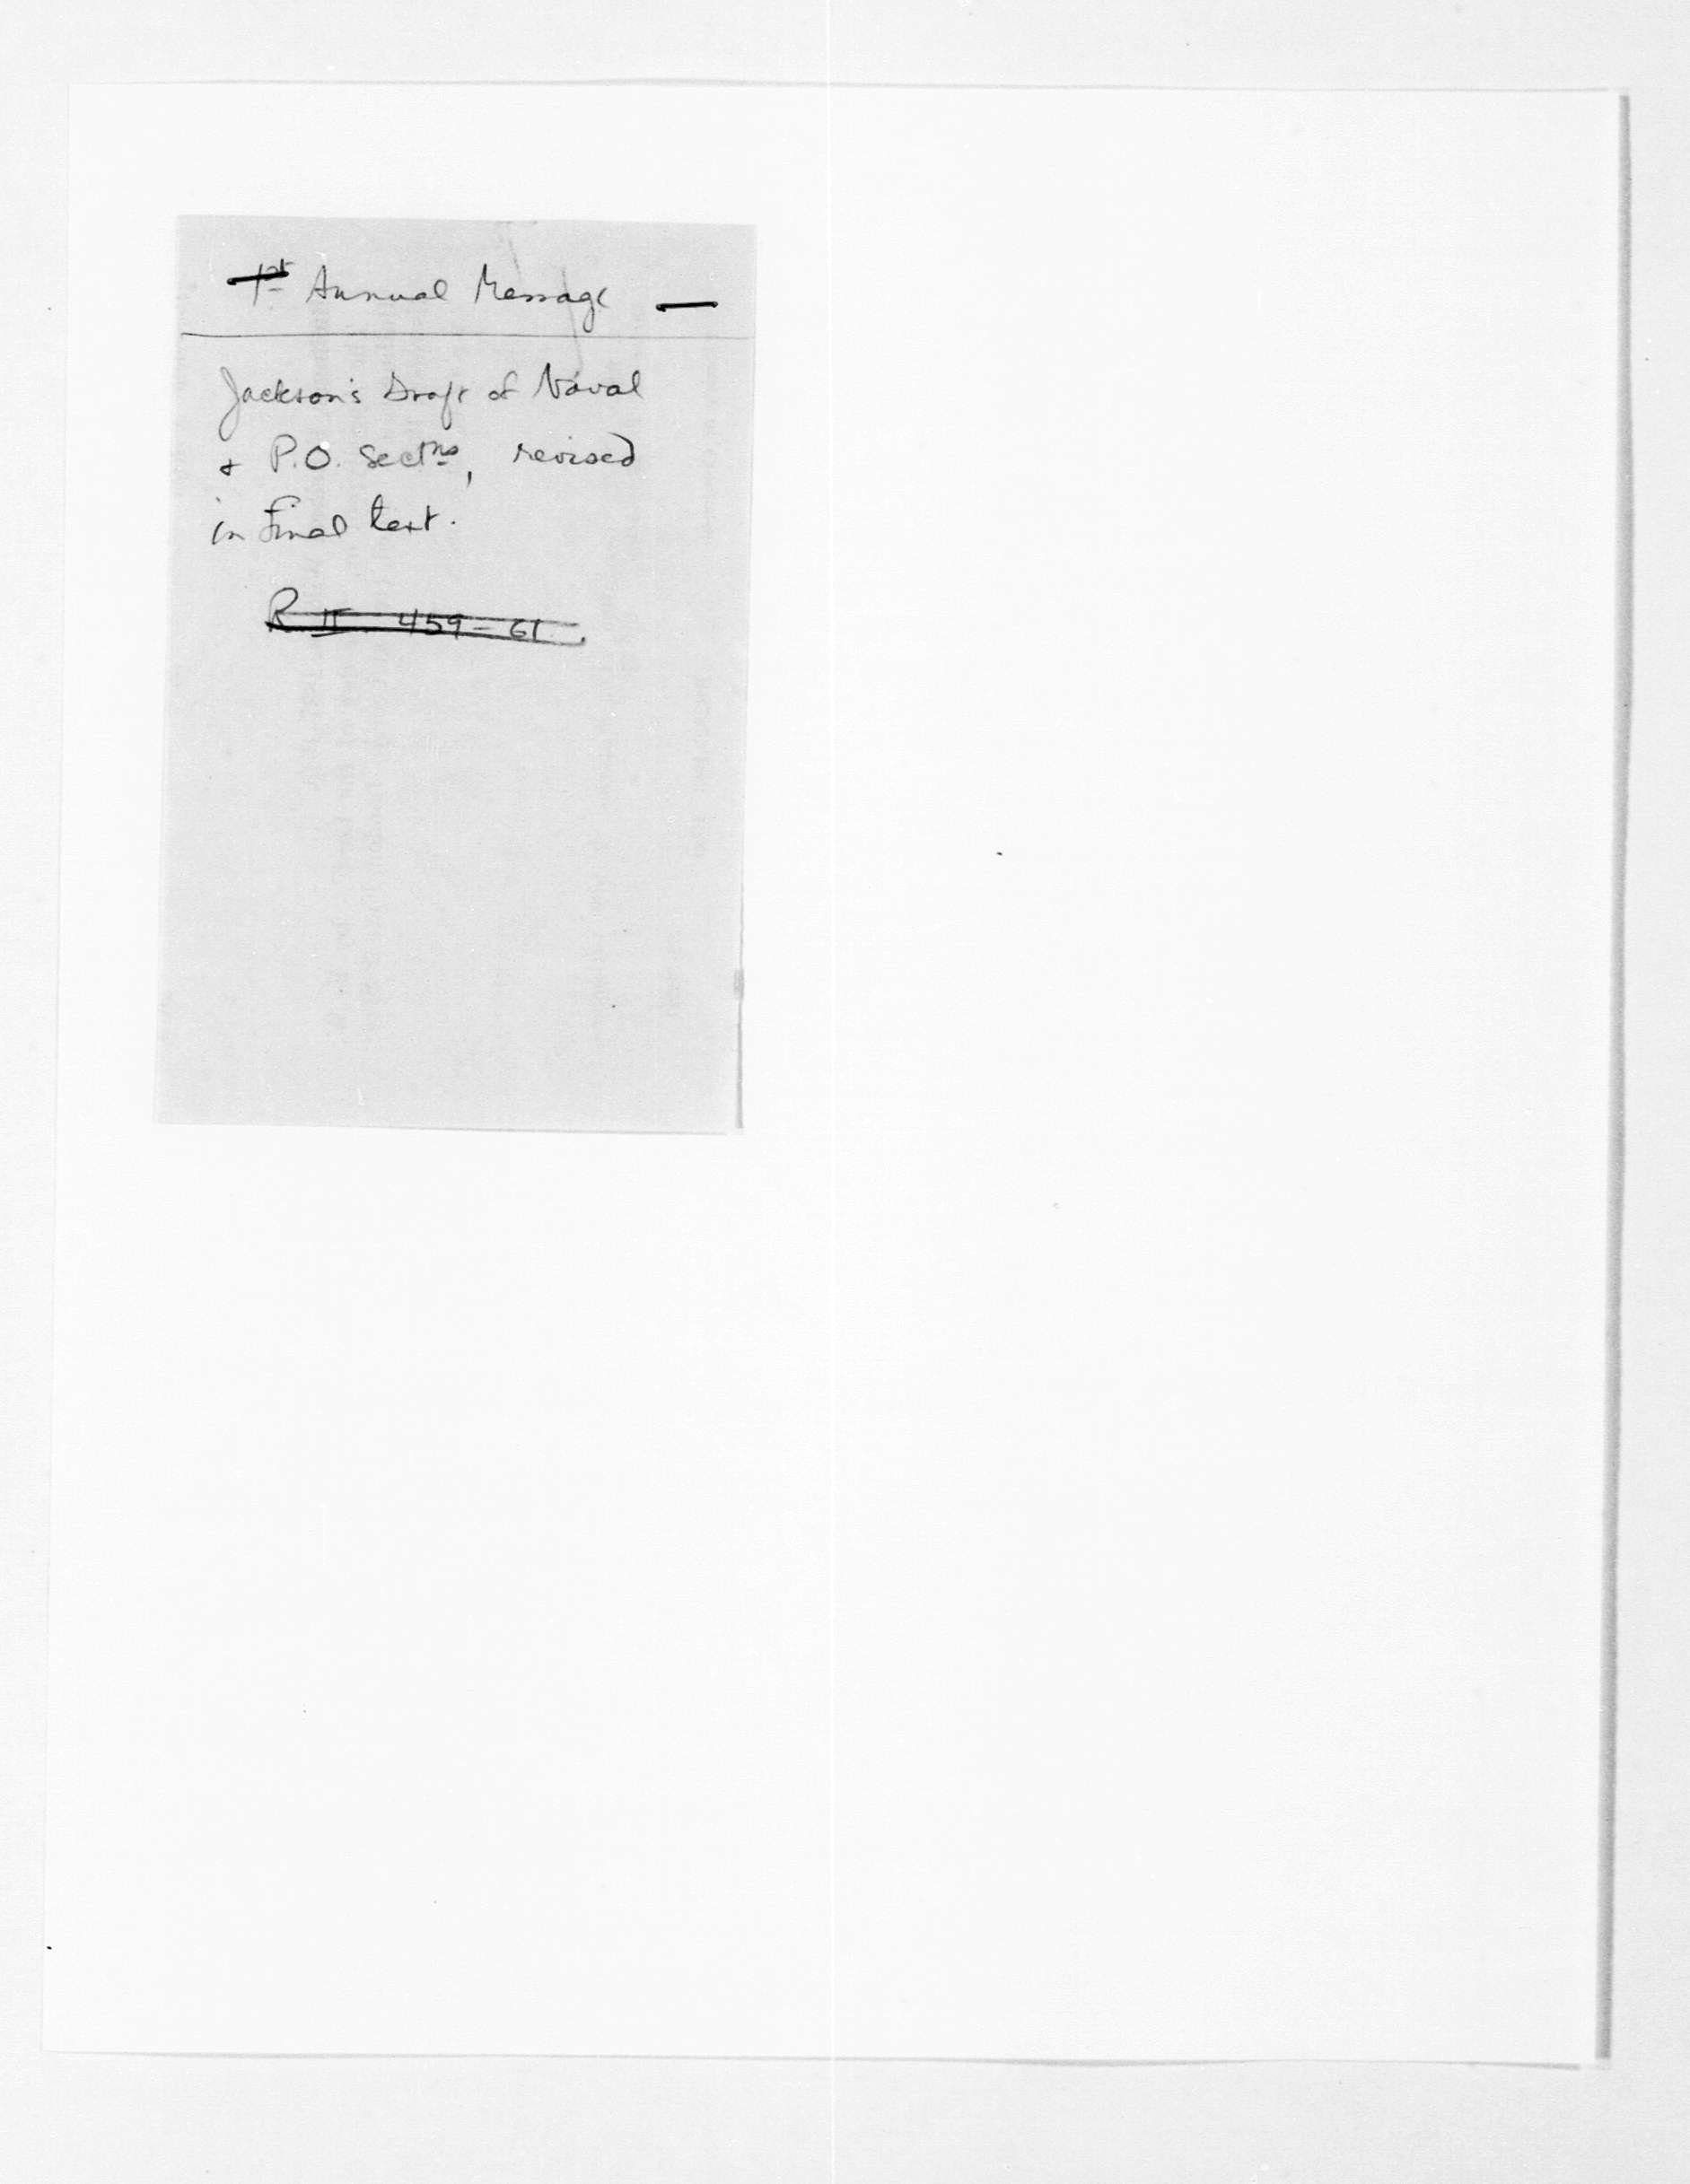 1st Annual Message —
Jackson's Draft of Naval
& P.O. Sectns, revised
in Final text.
R II 459-61.